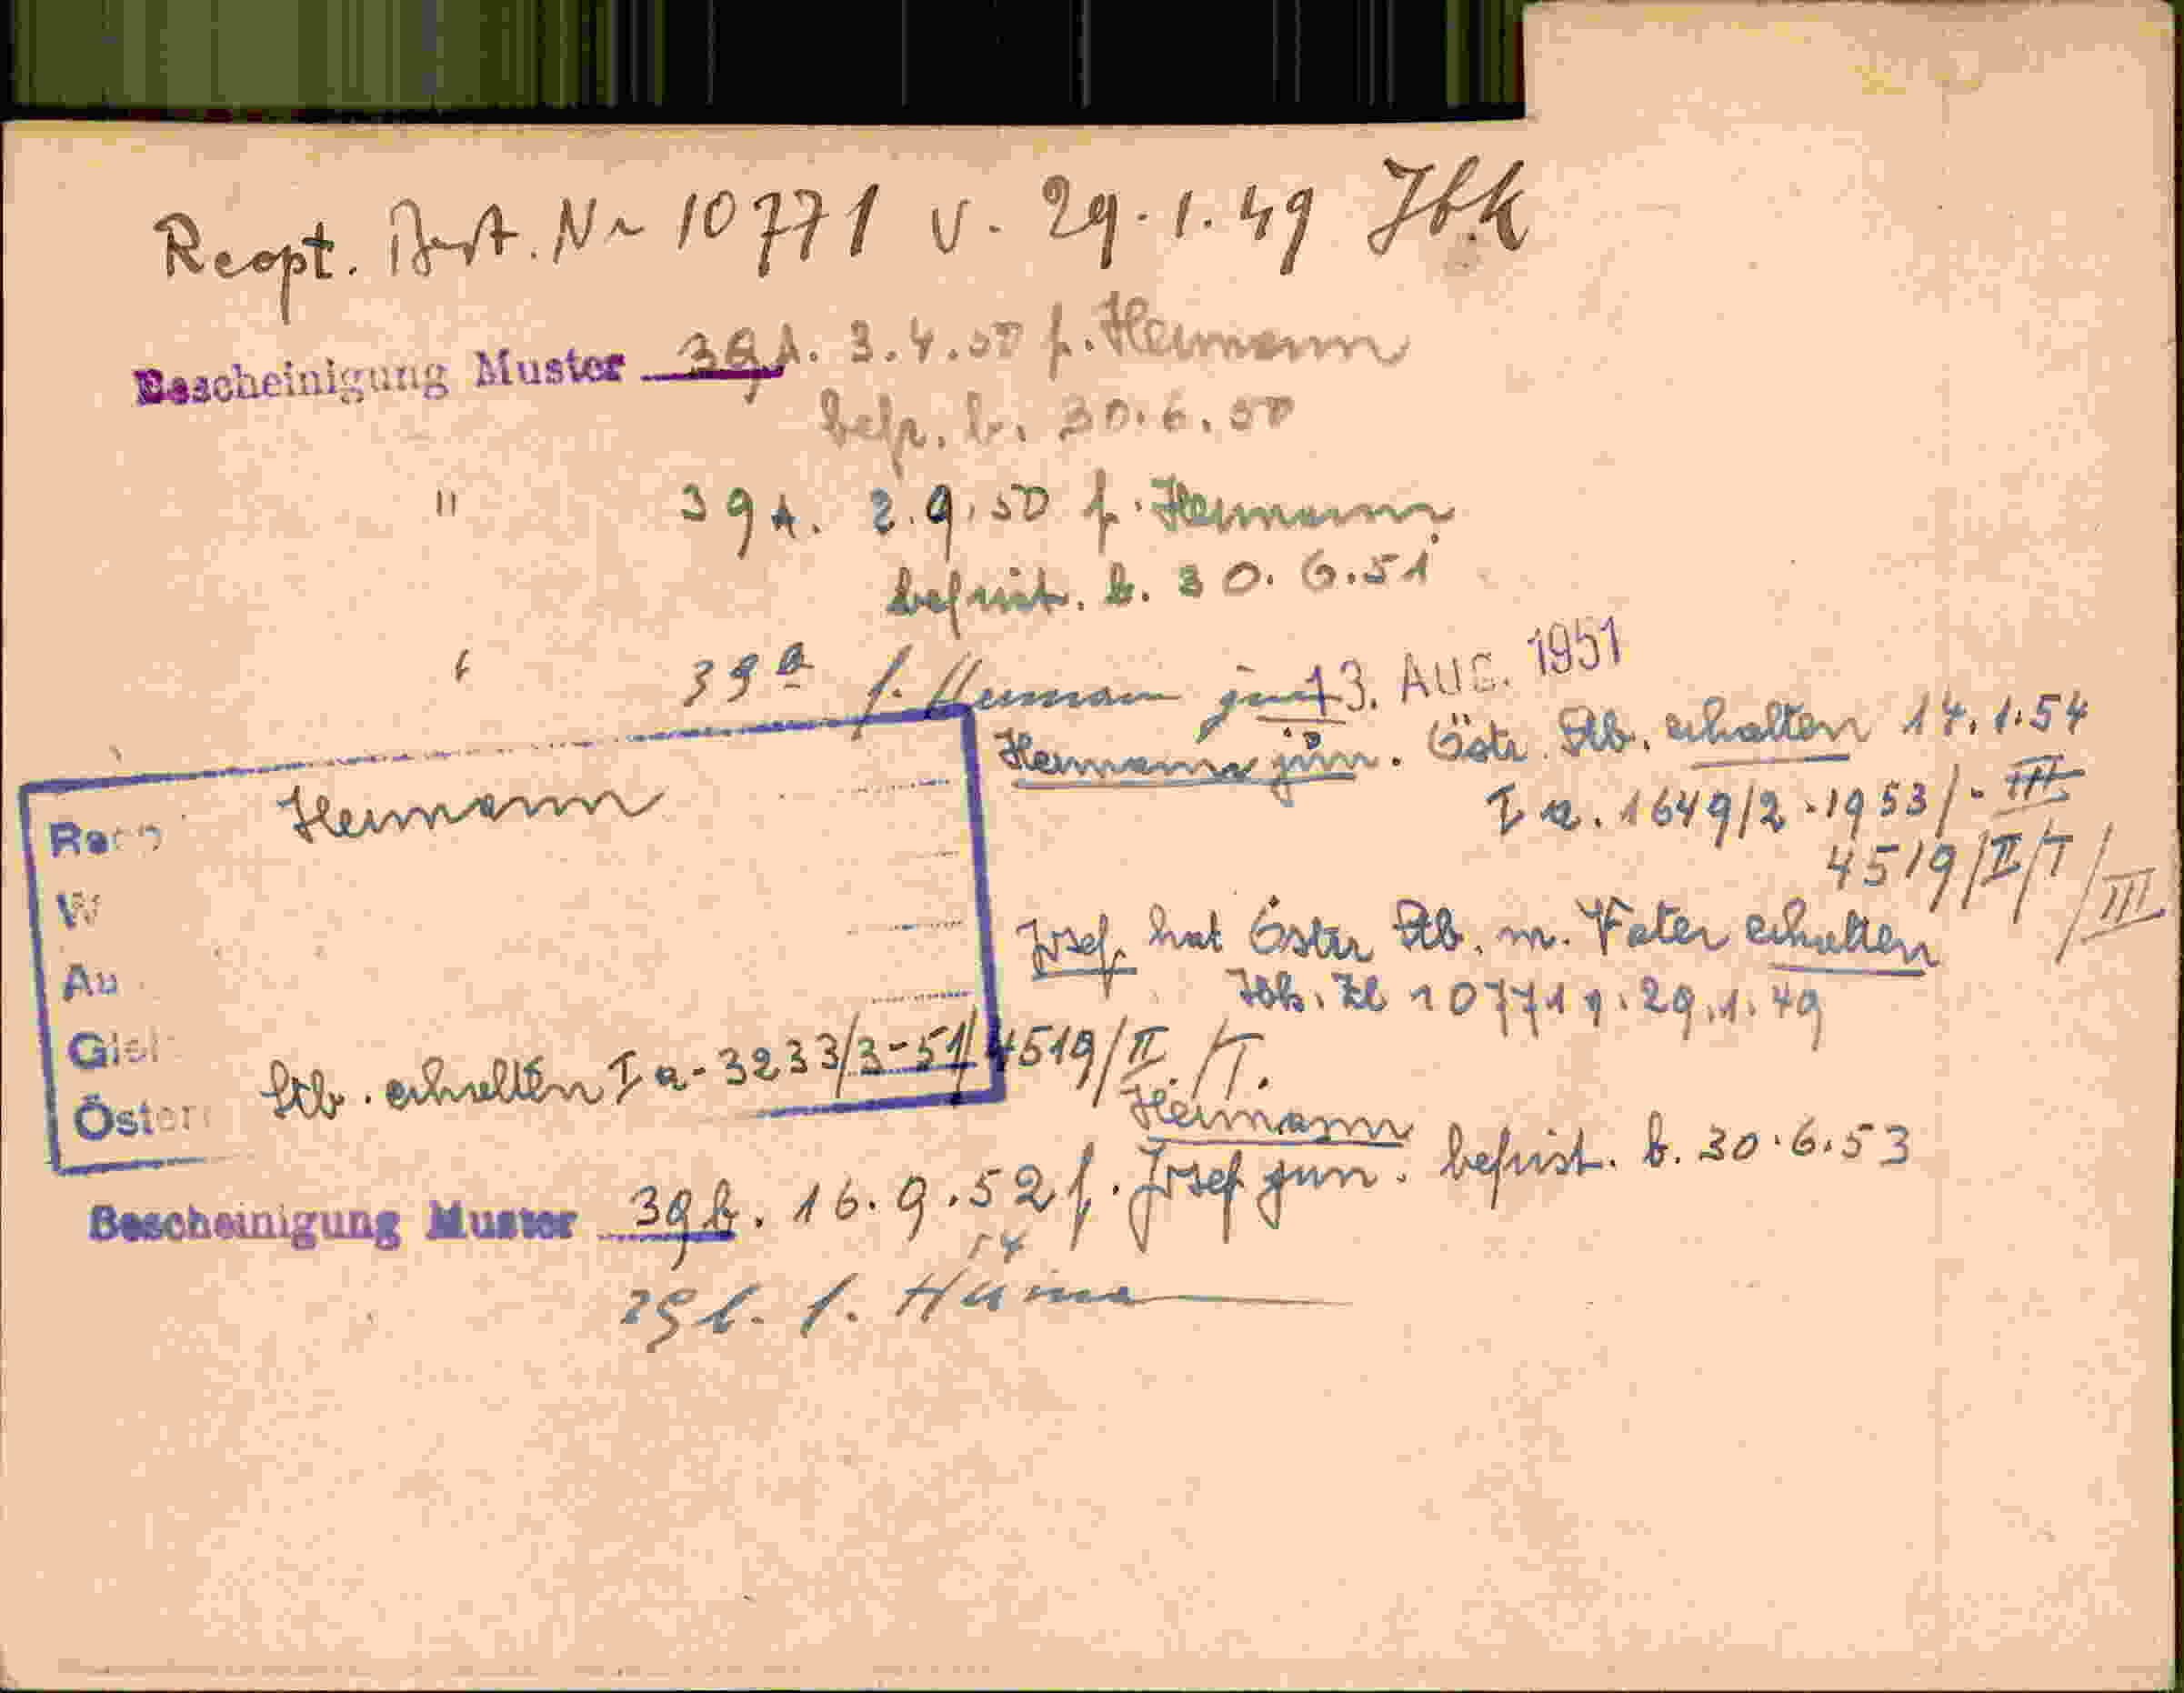 Reopt. Best. Nr 10771 v. 29.1.49 Jbk
Bescheinigung Muster 39A. 3.4.50 f. Hermann
befr. b. 30.6.50
" 39A. 2.9.50 f. Hermann
befrist. b. 30.6.51
" 39a f. Hermann jun 13. AUG. 1951
Hermann jun. Östr. Stb. erhalten 14.1.54
I a. 1649/2-1953/-III
4519/II/T/III
Hermann
W
Au
Glei
Öster
Josef hat Öster Stb. m. Vater erhalten
Ibk. Zl 10771 v. 29.1.49
Stb. erhalten I a-3233/3-51/4519/II/T.
Hermann
Bescheinigung Muster 39b. 16.9.52 f. Josef jun. befrist. b. 30.6.53
54
39b. f. Hermann